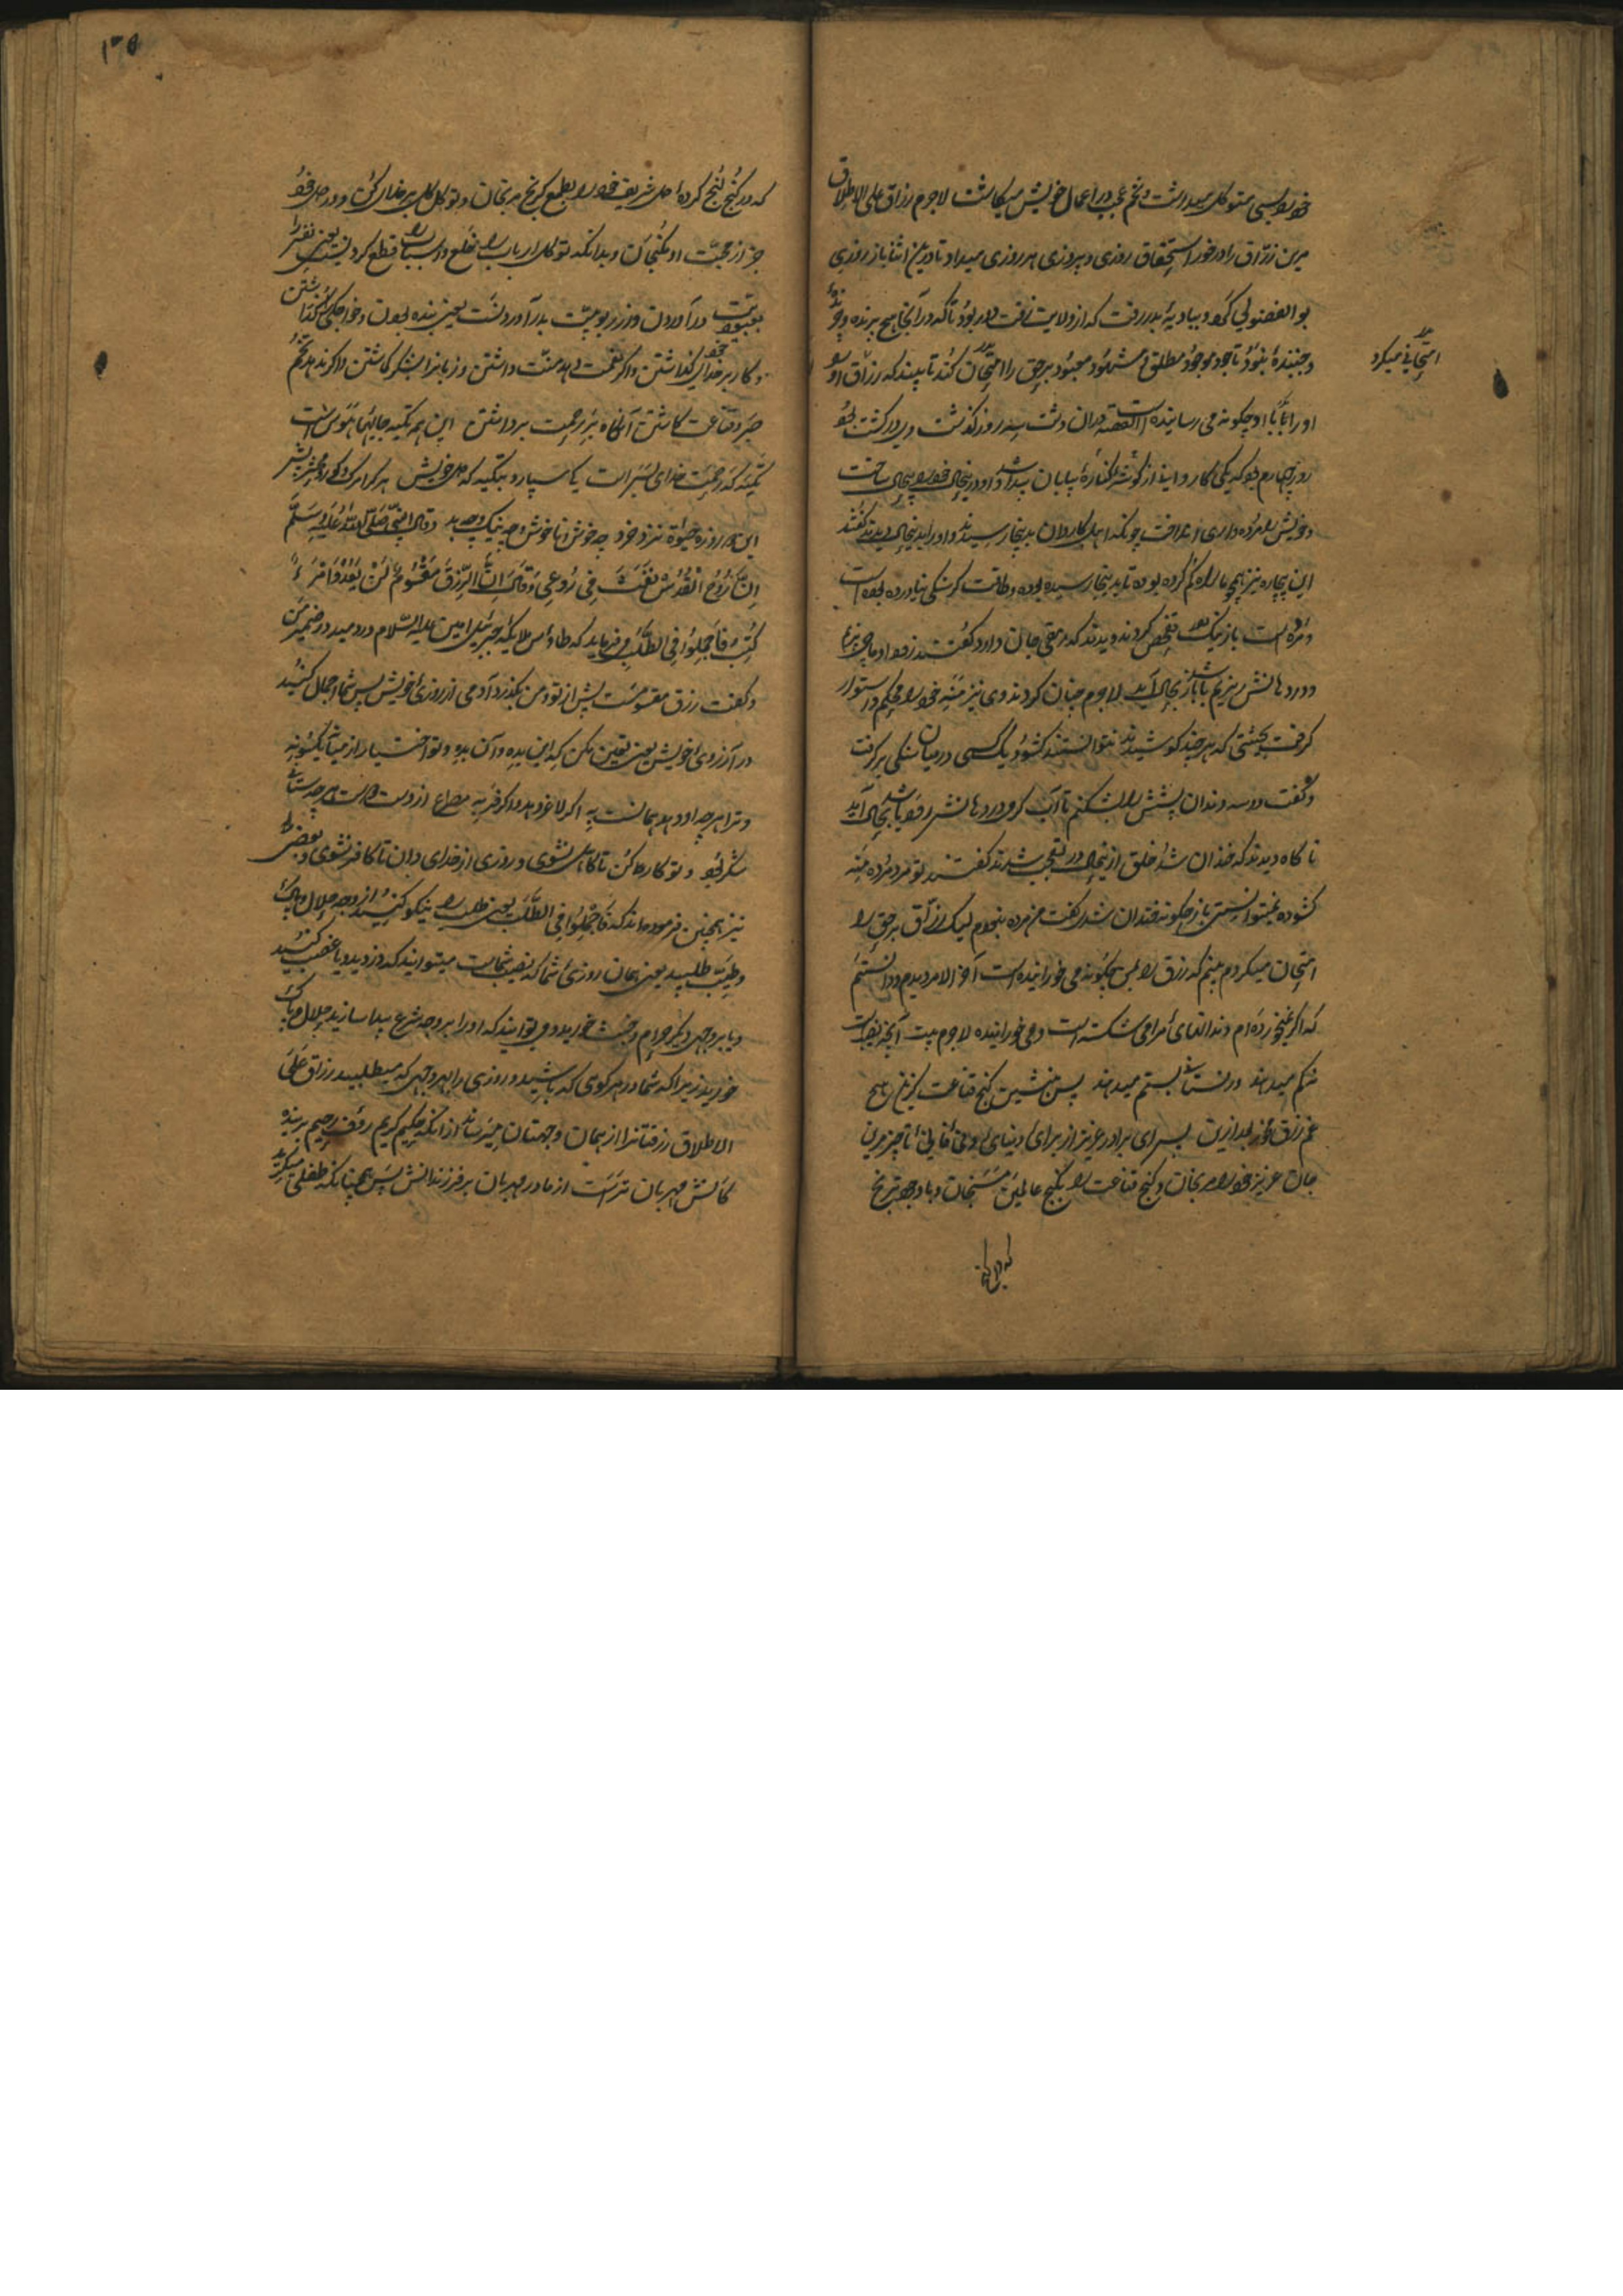 خود را بسی متوکل میداشت و تخم عجب در اعمال خویش میکاشت لاجرم رزاق علی الاطلاق
مرین رزاق را در خور استحقاق روزی و پیروزی هر روزی میداد تا درین اثنا باز روزی
بو الفضولی کرد و ببادیهٔ بدر رفت که از ولایت دور بود تا که در آنجا هیچ پرنده و چرنده
و جنبندهٔ نبود تا خود موجود مطلق و مشهود معبود بر حق را امتحان کند تا ببیند که رزاق او
امتحانی میکرد
او را با او چگونه می رسانیده است القصه در آن دشت سه روز گذشت و
روز چهارم بود که یکی کاروانی از گوشه و کنارهٔ بیابان پیدا شد و او درینحال خود را بیحال ساخت
و خویش را مرده واری انداخت چونکه اهل کاروان بدینجا رسیدند و او را بدینحال دیدند گفتند
این بیچاره نیز همچو ما راه گم کرده بوده تا بدینجا رسیده بوده و طاقت گرسنگی نیاورده بوده است
و مرده است باز نیک تفحص کردند و دیدند که رمقی جان دارد گفتند زود او را چیزی
در دهانش ریزیم تا باشد باز بحال آید لاجرم چنان کردند وی نیز منه خود را محکم و استوار
گرفت بحیثیتی که هر چند کوشیدند نتوانستند گشود یک کسی در میان سنگی بر گرفت
و گفت دو سه دندان پیشش را بشکنم تا آب گرم در دهانش رود باشد بحال آید
ناگاه دیدند که خندان شد خلق ازینحال در تعجب شدند گفتند تو مرد مرده منه
گشوده نمیتوانستی باز چگونه خندان شدی گفت من مرده نبودم لیک رزاق بر حق را
امتحان میکردم ببینم که رزق را بمن چگونه می خورانیده است آخر الامر دیدم و دانستم
که اگر نمیخورده ام دندانهای مرا می شکسته است و می خورانیده لاجرم بیت آنچه نصیبست
نه کم میدهند ور نستانی بستم میدهند پس بنشین کنج قناعت گزین هیچ
غم رزق مخور بعد ازین پس ای برادر عزیز از برای دنیای دونی فانیی ناچیز مرین
جان عزیز خود را مرنجان و کنج قناعت را بگنج عالمین مسنجان و با وجود ترنج
که در کنج
۱۳۵
که در کنج لنج کردهٔ دل شریف خود را بطمع کرنج مرنجان و توکل کلی بر خدای کن و در دل خود
جز از محبت او مگنجان و بدانکه توکل ارباب را خلع و اسباب را قطع کردنست یعنی نفس را
بعبودیت در آوردن و از ربوبیت بدر آوردنست یعنی بنده بودن و خواجگی گذاشتن
و کار بر خدای خود گذاشتن و اگر نعمت دهد منت داشتن و زبانرا بشکر گماشتن و اگر ندهد تخم
صبر و قناعت کاشتن آنگاه بر رحمت برداشتن این هم تکیه جایها هوس است
تکیه که رحمت خدای بس است یکا سپارد بتکیه که دل خویش هر کرا مرگ و گور و محشر پیش
این دو روزه حیوة نزد خرد چه خوش و ناخوش و چه نیک و چه بد و قال النبی صلی الله علیه وسلم
ان روح القدس نفث فی روعی و قال ان الرزق مقسوم لن یعدو امرء
کتب فاجملوا فی الطلب می فرماید که طاؤس ملایکه جبرئیل امین علیه السلام در دمید در ضمیر من
و گفت رزق مقسومست پیش از تو و من نگذرد آدمی از روزی خویش پس شما اجمال کنید
در آرزوی خویش یعنی تعیین مکن که این بده و آن بده و تو اختیار از میان یکسو نه
و ترا هر چه او دهد همانست به اگر لاغر دهد و اگر فربه مصراع از دست دوست هر چه ستانی
شکر بود و تو کار ها کن تا کاهل نشوی و روزی از خدای دان تا کافر نشوی و بعضی
نیز همچنین فرموده اند که فاجملوا فی الطلب یعنی طلب را نیکو کنید از وجه حلال و پاک
و طیب طلبید یعنی همان روزی شما که نصیب شماست میتوانید که دزدیده یا غصب کنید
و یا بر وجهی دیگر حرام و خبیث خورید و می توانید که او را بر وجه شرع پیدا سازید حلال و پاک
خورید زیرا که شما در هر کوئی که باشید و روزی را بهر وجهی که میطلبید رزاق علی
الاطلاق رزقتانرا از همان وجهتان میرساند از آنکه حکیم کریم رؤف رحیم بر بنده
گانش مهربان ترست از مادر مهربان بر فرزندانش پس همچنانکه طفلی میگرید